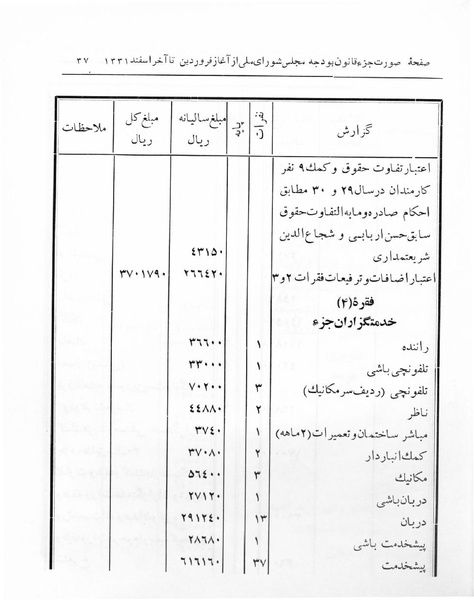 صفحهٔ صورت جزء قانون بودجه مجلس شورای ملی از آغاز فروردین تا آخر اسفند ۱۳۳۱ ۳۷
گزارش نفرات پایه مبلغ سالیانه ریال مبلغ کل ریال ملاحظات
اعتبار تفاوت حقوق و کمک ۹ نفر
کارمندان در سال ۲۹ و ۳۰ مطابق
احکام صادره و مابه التفاوت حقوق
سابق حسن اربابی و شجاع الدین
شریعتمداری ۴۳۱۵۰
اعتبار اضافات و ترفیعات فقرات ۲ و ۳ ۲۶۶۴۲۰ ۳۷۰۱۷۹۰
فقرهٔ (۴)
خدمتگزاران جزء
راننده ۱ ۳۶۶۰۰
تلفونچی باشی ۱ ۳۳۰۰۰
تلفونچی (ردیف سر مکانیک) ۳ ۷۰۲۰۰
ناظر ۲ ۴۴۸۸۰
مباشر ساختمان و تعمیرات (۲ ماهه) ۱ ۳۷۴۰
کمک انباردار ۲ ۳۷۰۸۰
مکانیک ۳ ۵۶۴۰۰
دربان باشی ۱ ۲۷۱۲۰
دربان ۱۳ ۲۹۱۲۴۰
پیشخدمت باشی ۱ ۲۸۶۸۰
پیشخدمت ۳۷ ۶۱۶۱۶۰